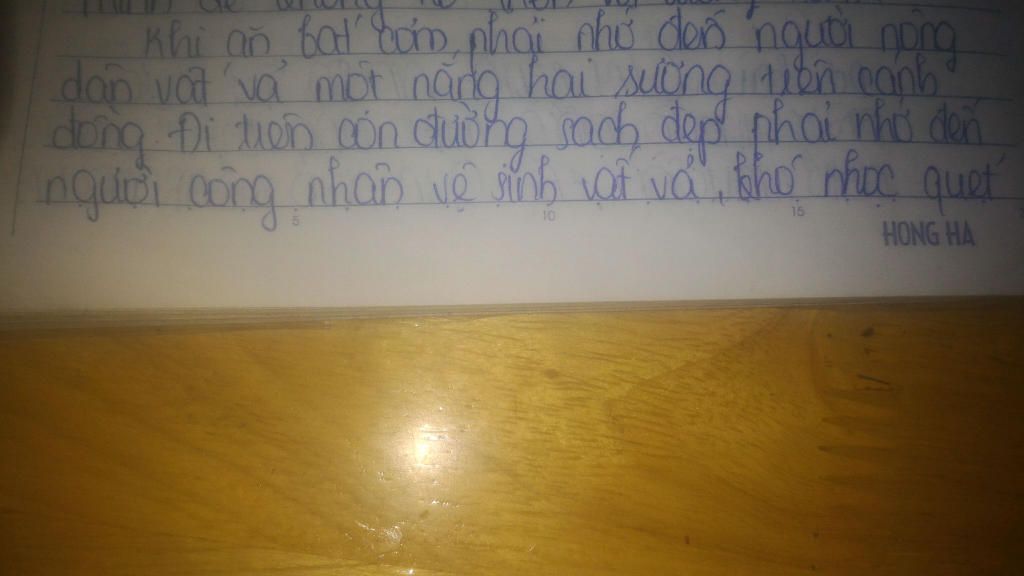 Khi ăn bát cơm, phải nhớ đến người nông
dân vất vả một nắng hai sương trên cánh
đồng. Đi trên con đường sạch, đẹp phải nhớ đến
người công nhân vệ sinh vất vả, khó nhọc quét
5 10 15
HONG HA